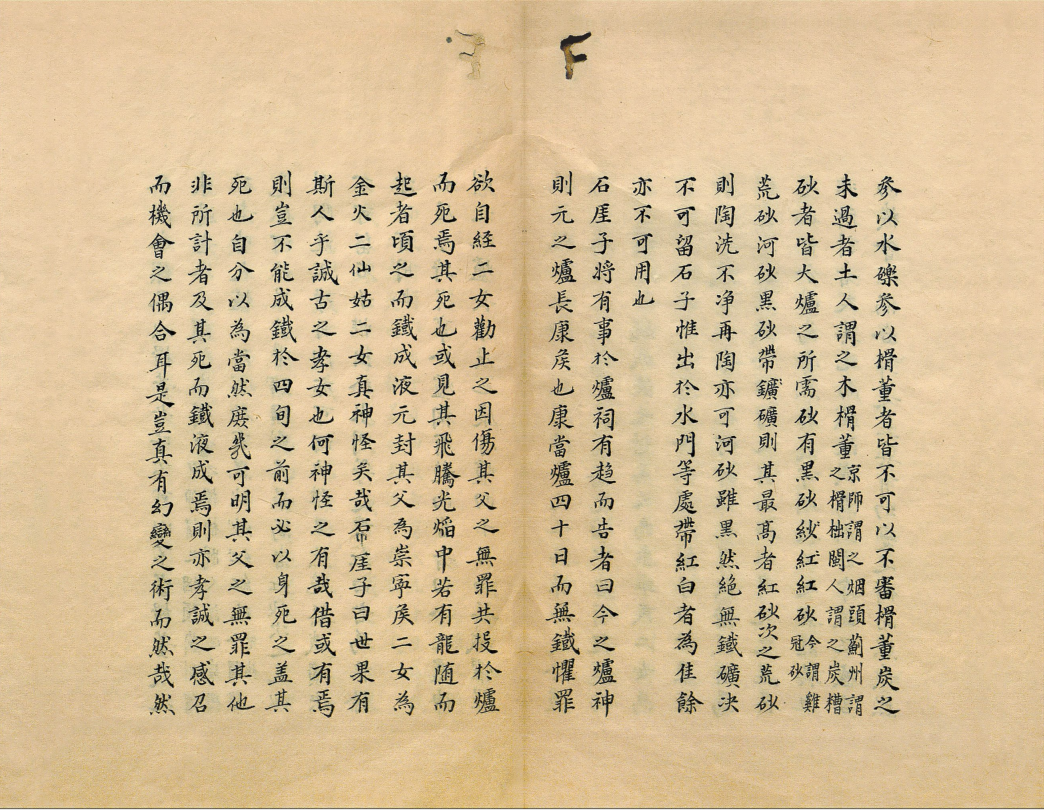 參以水礫參以榾董者皆不可以不審榾董炭之
未過者土人謂之木榾董京師謂之烟頭薊州謂之榾柮閩人謂之炭糟
砂者皆大爐之所需砂有黑砂紗紅紅砂今謂雞冠砂
荒砂河砂黑砂帶鑛礦則其最高者紅砂次之荒砂
則陶洗不净再陶亦可河砂雖黑然絶無鐵礦决
不可留石子惟出於水門等處帶紅白者為佳餘
亦不可用也
石厓子將有事於爐祠有趋而告者曰今之爐神
則元之爐長康矦也康當爐四十日而無鐵懼罪
欲自經二女勸止之因傷其父之無罪共投於爐
而死焉其死也或見其飛騰光焰中若有龍随而
起者頃之而鐵成液元封其父為崇寧矦二女為
金火二仙姑二女真神怪矣哉石厓子曰世果有
斯人乎誠古之孝女也何神怪之有哉借或有焉
則豈不能成鐵於四旬之前而必以身死之盖其
死也自分以為當然庻幾可明其父之無罪其他
非所計者及其死而鐵液成焉則亦孝誠之感召
而機會之偶合耳是豈真有幻變之術而然哉然